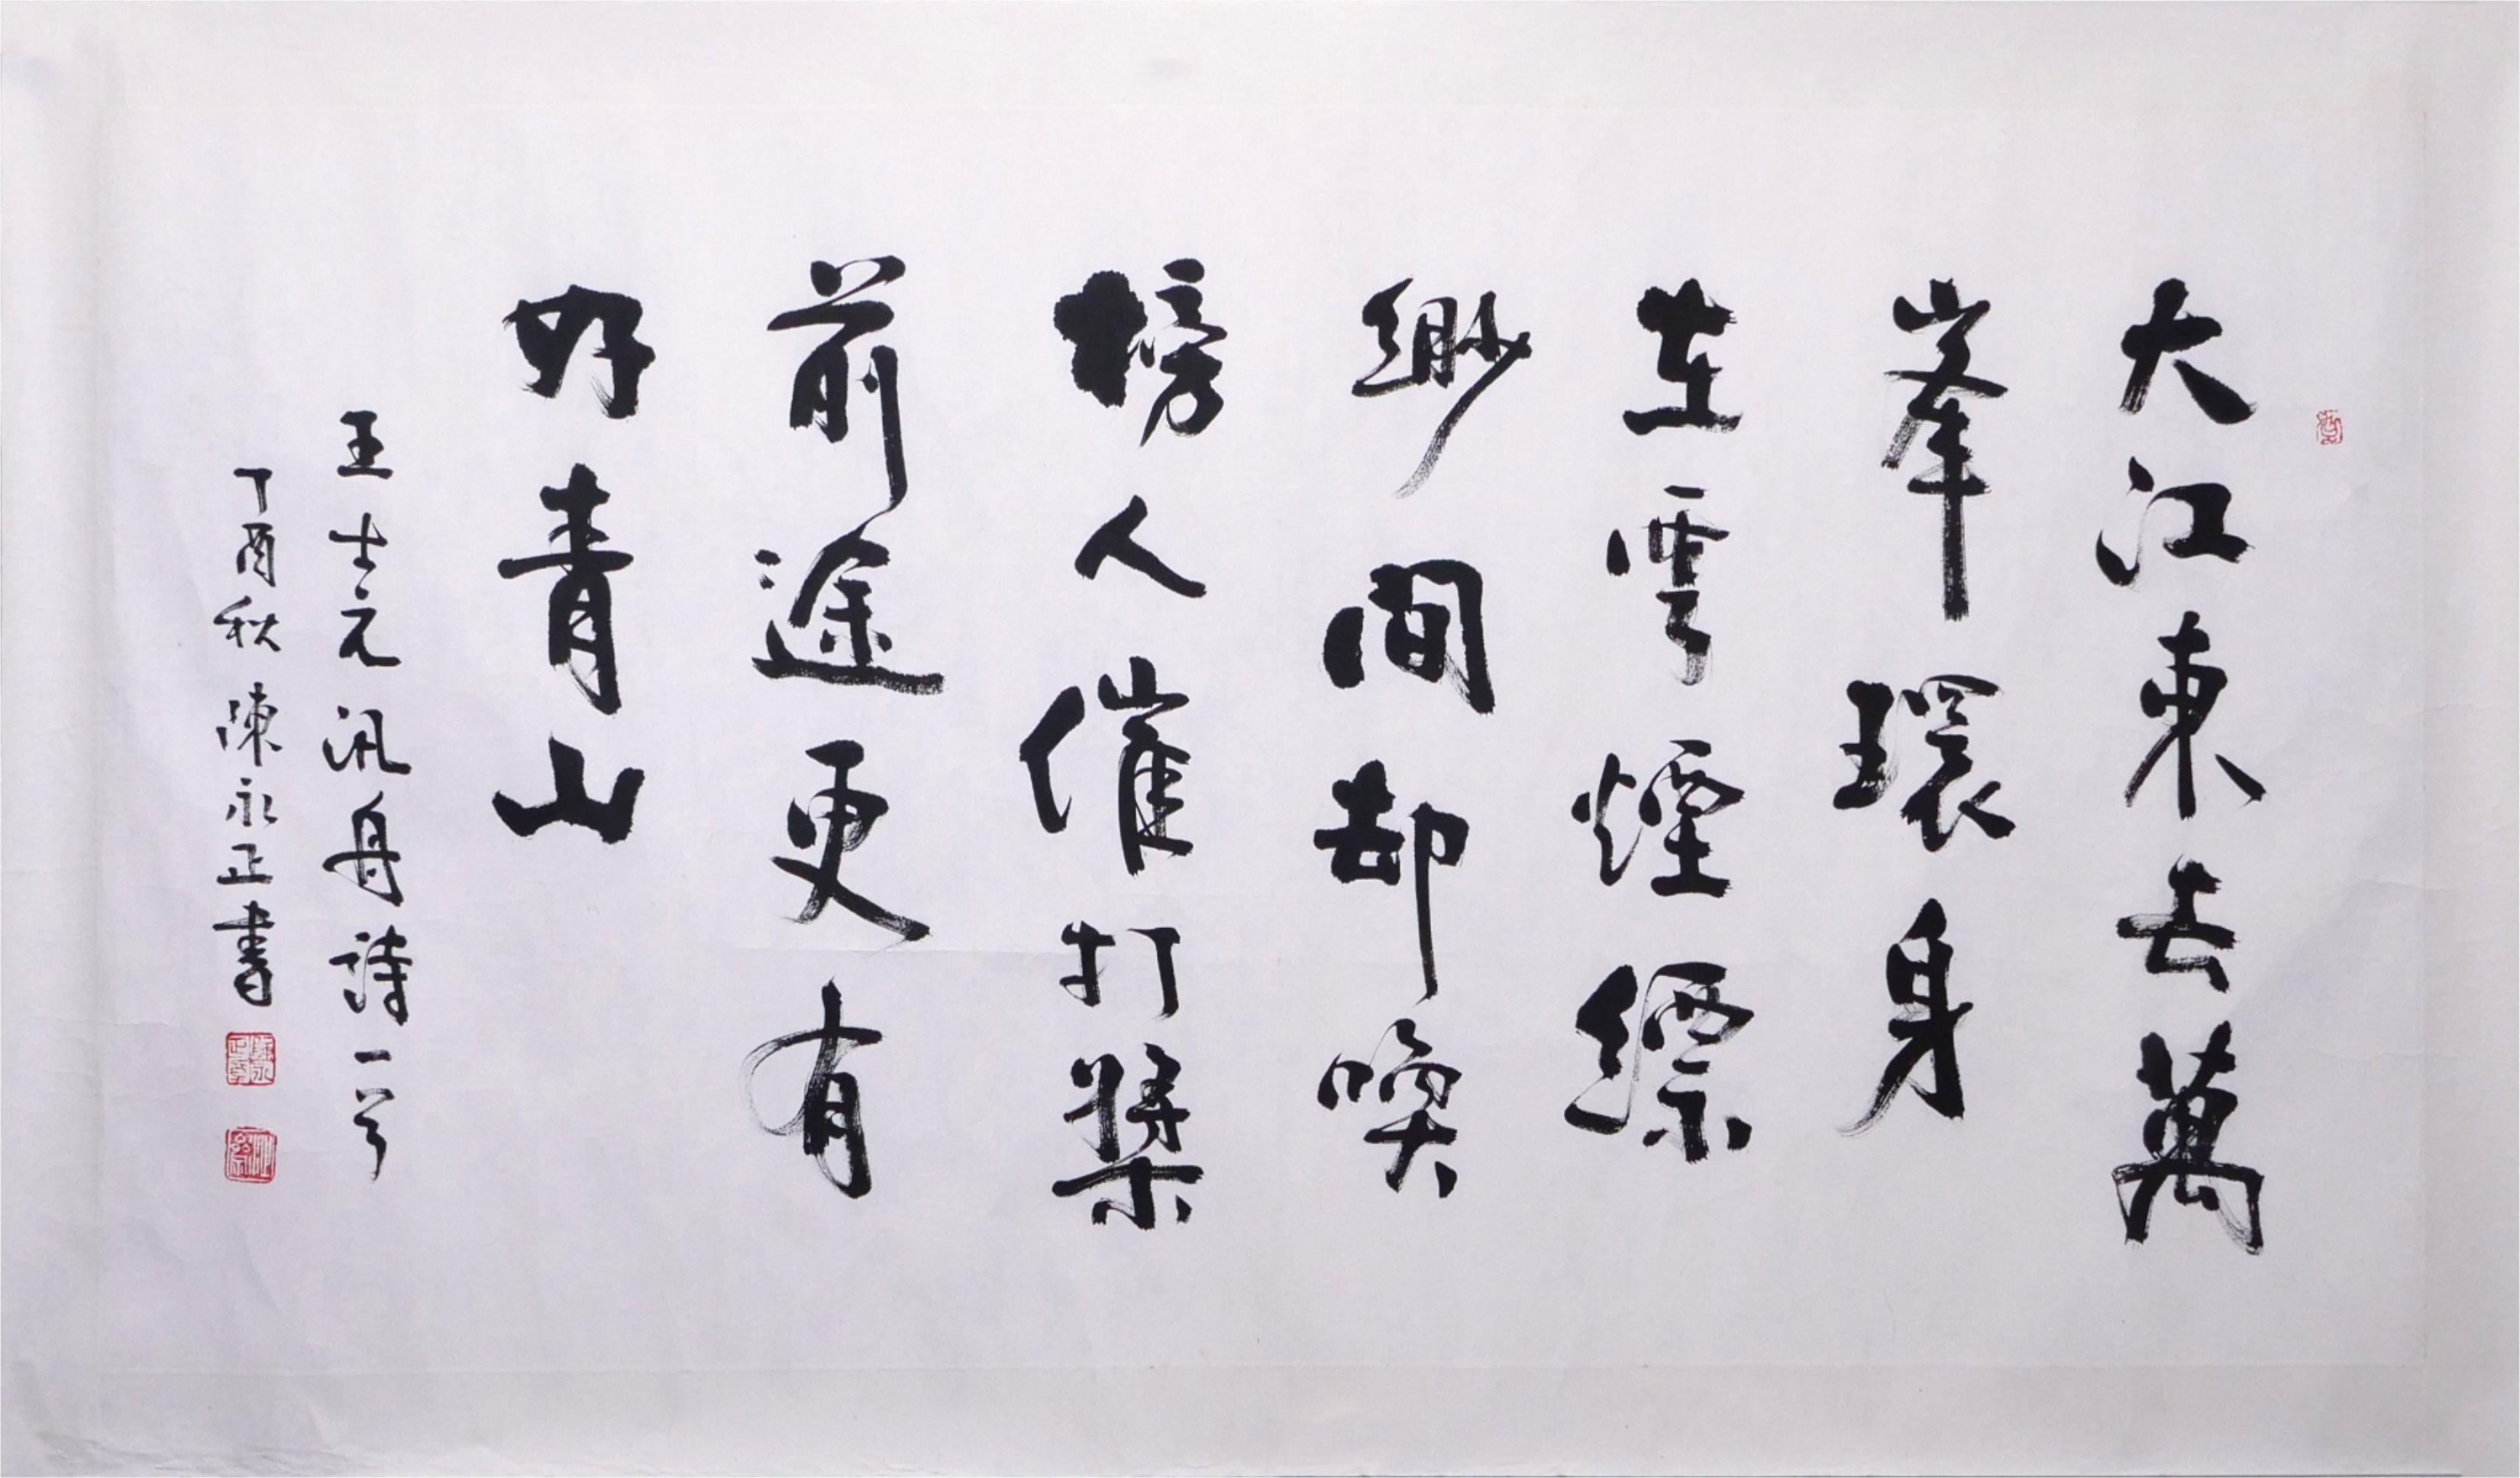 大江東去萬
峯環身
在雲煙縹
緲間却喚
榜人催打槳
前途更有
好青山
王士元汎舟詩一首
丁酉秋陳永正書